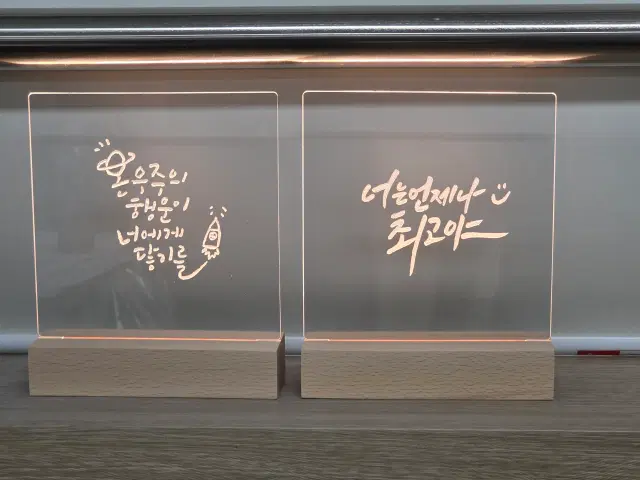 온 우주의
행운이
너에게
닿기를
너는 언제나
최고야